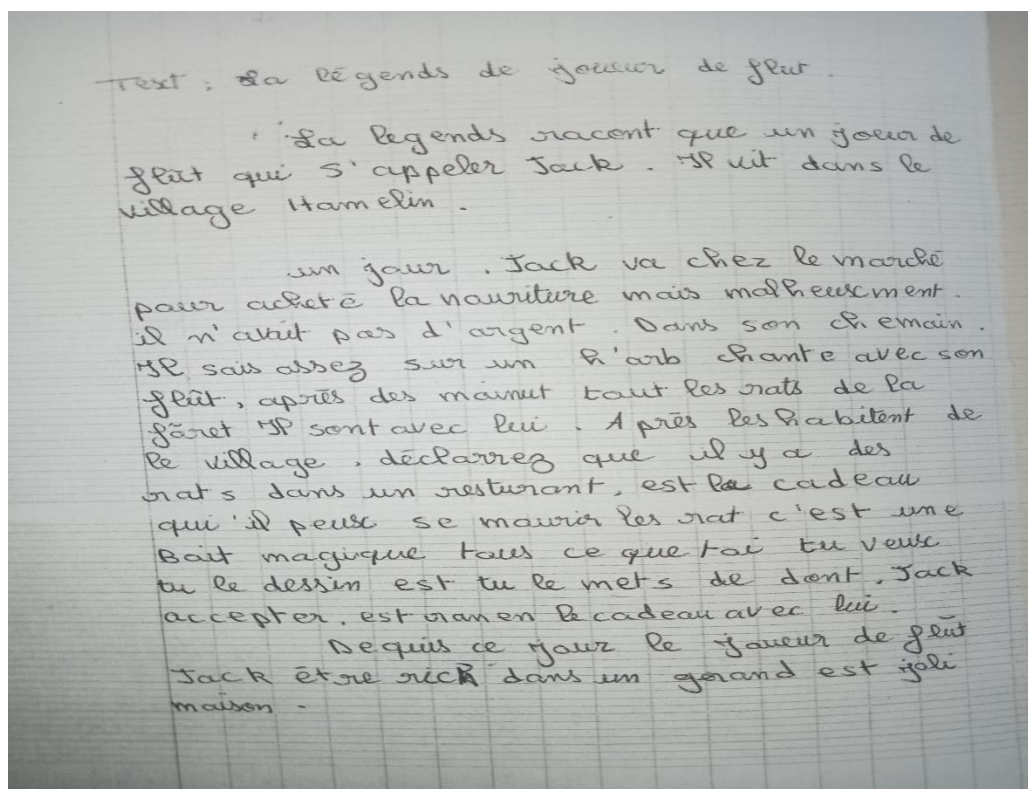 Text : La légends de joueur de flut.
La legends racont que un joeur de
flût qui s'appeler Jack. Il vit dans le
village Hamelin.
un jour. Jack va chez le marché
pour acheté la nouriture mais malheuscment.
il n'avait pas d'argent. Dans son chemain.
Il sais assez sur un h'arb chante avec son
flût, après des mainut tout les rats de la
fôret Il sont avec lui. Après les habitent de
le village, déclarrez que il y a des
rats dans un resturant, est le cadeau
qui'il peusc se mourir les rat c'est une
Boit magique tous ce que toi tu veusc
tu le dessin est tu le mets de dont. Jack
accepter. est ranen le cadeau avec lui.
Dequis ce jour le joueur de flût
Jack être rich dans un grand est joli
maison.